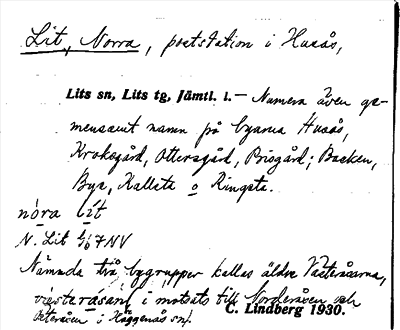 Lit, Norra, poststation i Husås,
Lits sn, Lits tg, Jämtl. l. — Numera även ge-
mensamt namn på byarna Husås,
Kroksgård, Ottersgård, Bisgård; Backen,
Bye, Kallsta o Ringsta.
nóra lít
N. Lit 67NV
Nämnda två bygrupper kallas äldre Västeråsarna,
i motsats till Norderåsen och
Österåsen i Häggenås sn.
C. Lindberg 1930.